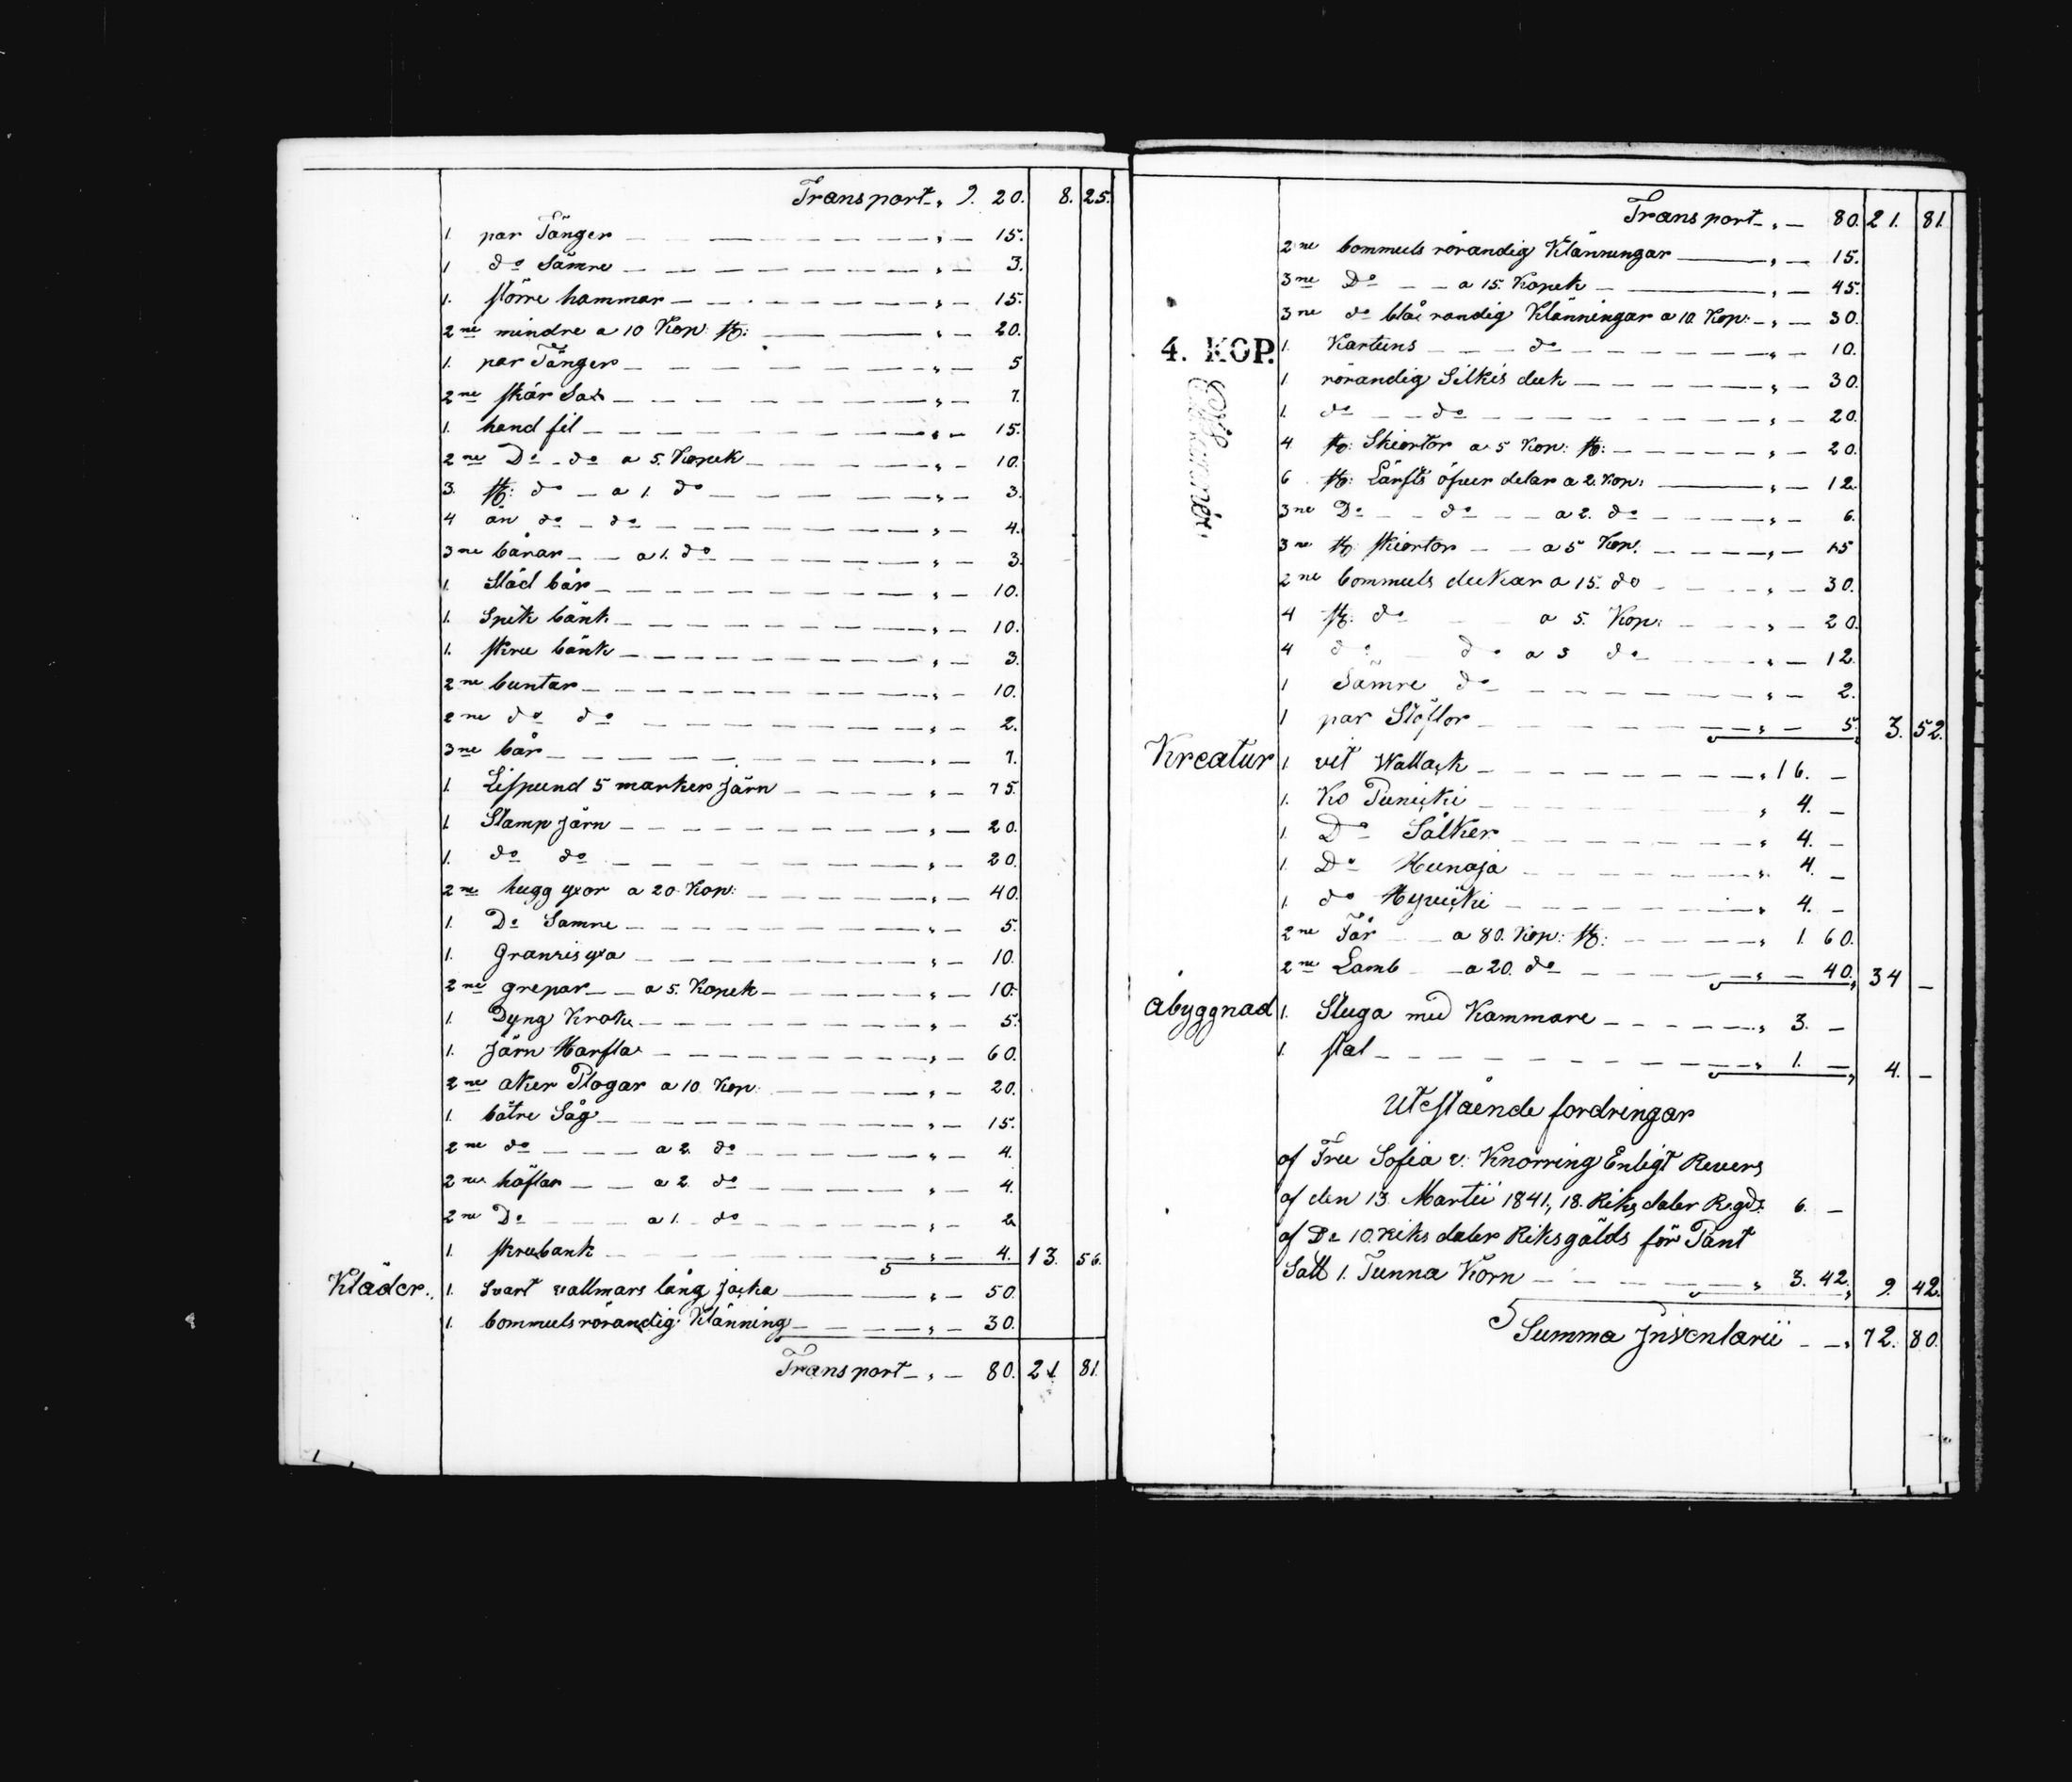 Transport „ 9. 20. 8. 25.
1. par Tänger „ — 15.
1 do Sämre „ — 3.
1. större hammar „ — 15.
2ne mindre a 10 Kop: st: „ — 20.
1. par Tänger „ — 5
2ne skär Sax „ — 7.
1. hand fil „ — 15.
2ne Do do a 5. Kopek „ — 10.
3. st: do a 1. do „ — 3.
4 än do do „ — 4.
3ne bårar a 1. do „ — 3.
1. Städ bår „ — 10.
1. Spik bänk „ — 10.
1. skru bänk „ — 3.
2ne buntar „ — 10.
2ne do do „ — 2.
3ne bår „ — 7.
1. Lispund 5 marker Järn „ — 75.
1 Stamp Järn „ — 20.
1. do do „ — 20.
2ne hugg yxor a 20 Kop: „ — 40.
1. Do Samre „ — 5.
1. Granris yxa „ — 10.
2ne grepar a 5. Kopek „ — 10.
1. Dyng Krok „ — 5.
1. Järn Harfla „ — 60.
2ne åker Plogar a 10 Kop: „ — 20.
1. bätre Såg „ — 15.
2ne do a 2. do „ — 4.
2ne höflar a 2 do „ — 4.
2ne Do a 1. do „ — 2
1. skrubank „ — 4. 13. 56.
Kläder. 1. Svart vallmars lång Jacka „ — 50.
1. bommuls rörandig Klänning „ — 30.
Transport „ — 80. 21. 81.
Transport „ — 80. 21. 81.
2ne bommuls rörandig Klänningar „ — 15.
3ne Do a 15. Kopek „ — 45.
3ne do blå randig Klänningar a 10. Kop: „ — 30.
4. KOP.
1. Kartuns do „ — 10.
1 rörandig Silkis duk „ — 30.
1. do do „ — 20.
4 st: Skiortor a 5 Kop: st: „ — 20.
6 st: Lärfts öfver delar a 2. Kop: „ — 12.
3ne Do do a 2. do „ — 6.
3ne st: skiortor a 5 Kop: „ — 15
2ne bommuls dukar a 15. do „ — 30.
4 st: do a 5. Kop: „ — 20.
4 do do a 3 do „ — 12.
1 Sämre do „ — 2.
1 par Stöflor „ — 5. 3. 52.
Kreatur 1 vit Wallack „ 16. —
1. Ko Punicki „ 4. —
1. Do Sålker „ 4. —
1. Do Hunaja „ 4. —
1 do Hyvicki „ 4. —
2ne Får a 80. Kop: st: „ 1. 60.
2ne Lamb a 20. do „ — 40. 34 —
Åbyggnad 1. Stuga med Kammare „ 3. —
1. stal „ 1. — 4. —
Utestående fordringar
af Fru Sofia v: Knorring Enligt Revers
af den 13. Martii 1841, 18. Riks daler R.gds. 6. —
af Do 10. riks daler Riksgälds för Pant
Satt 1. Tunna Korn „ 3. 42. 9. 42.
Summa Inventarii „ 72. 80.